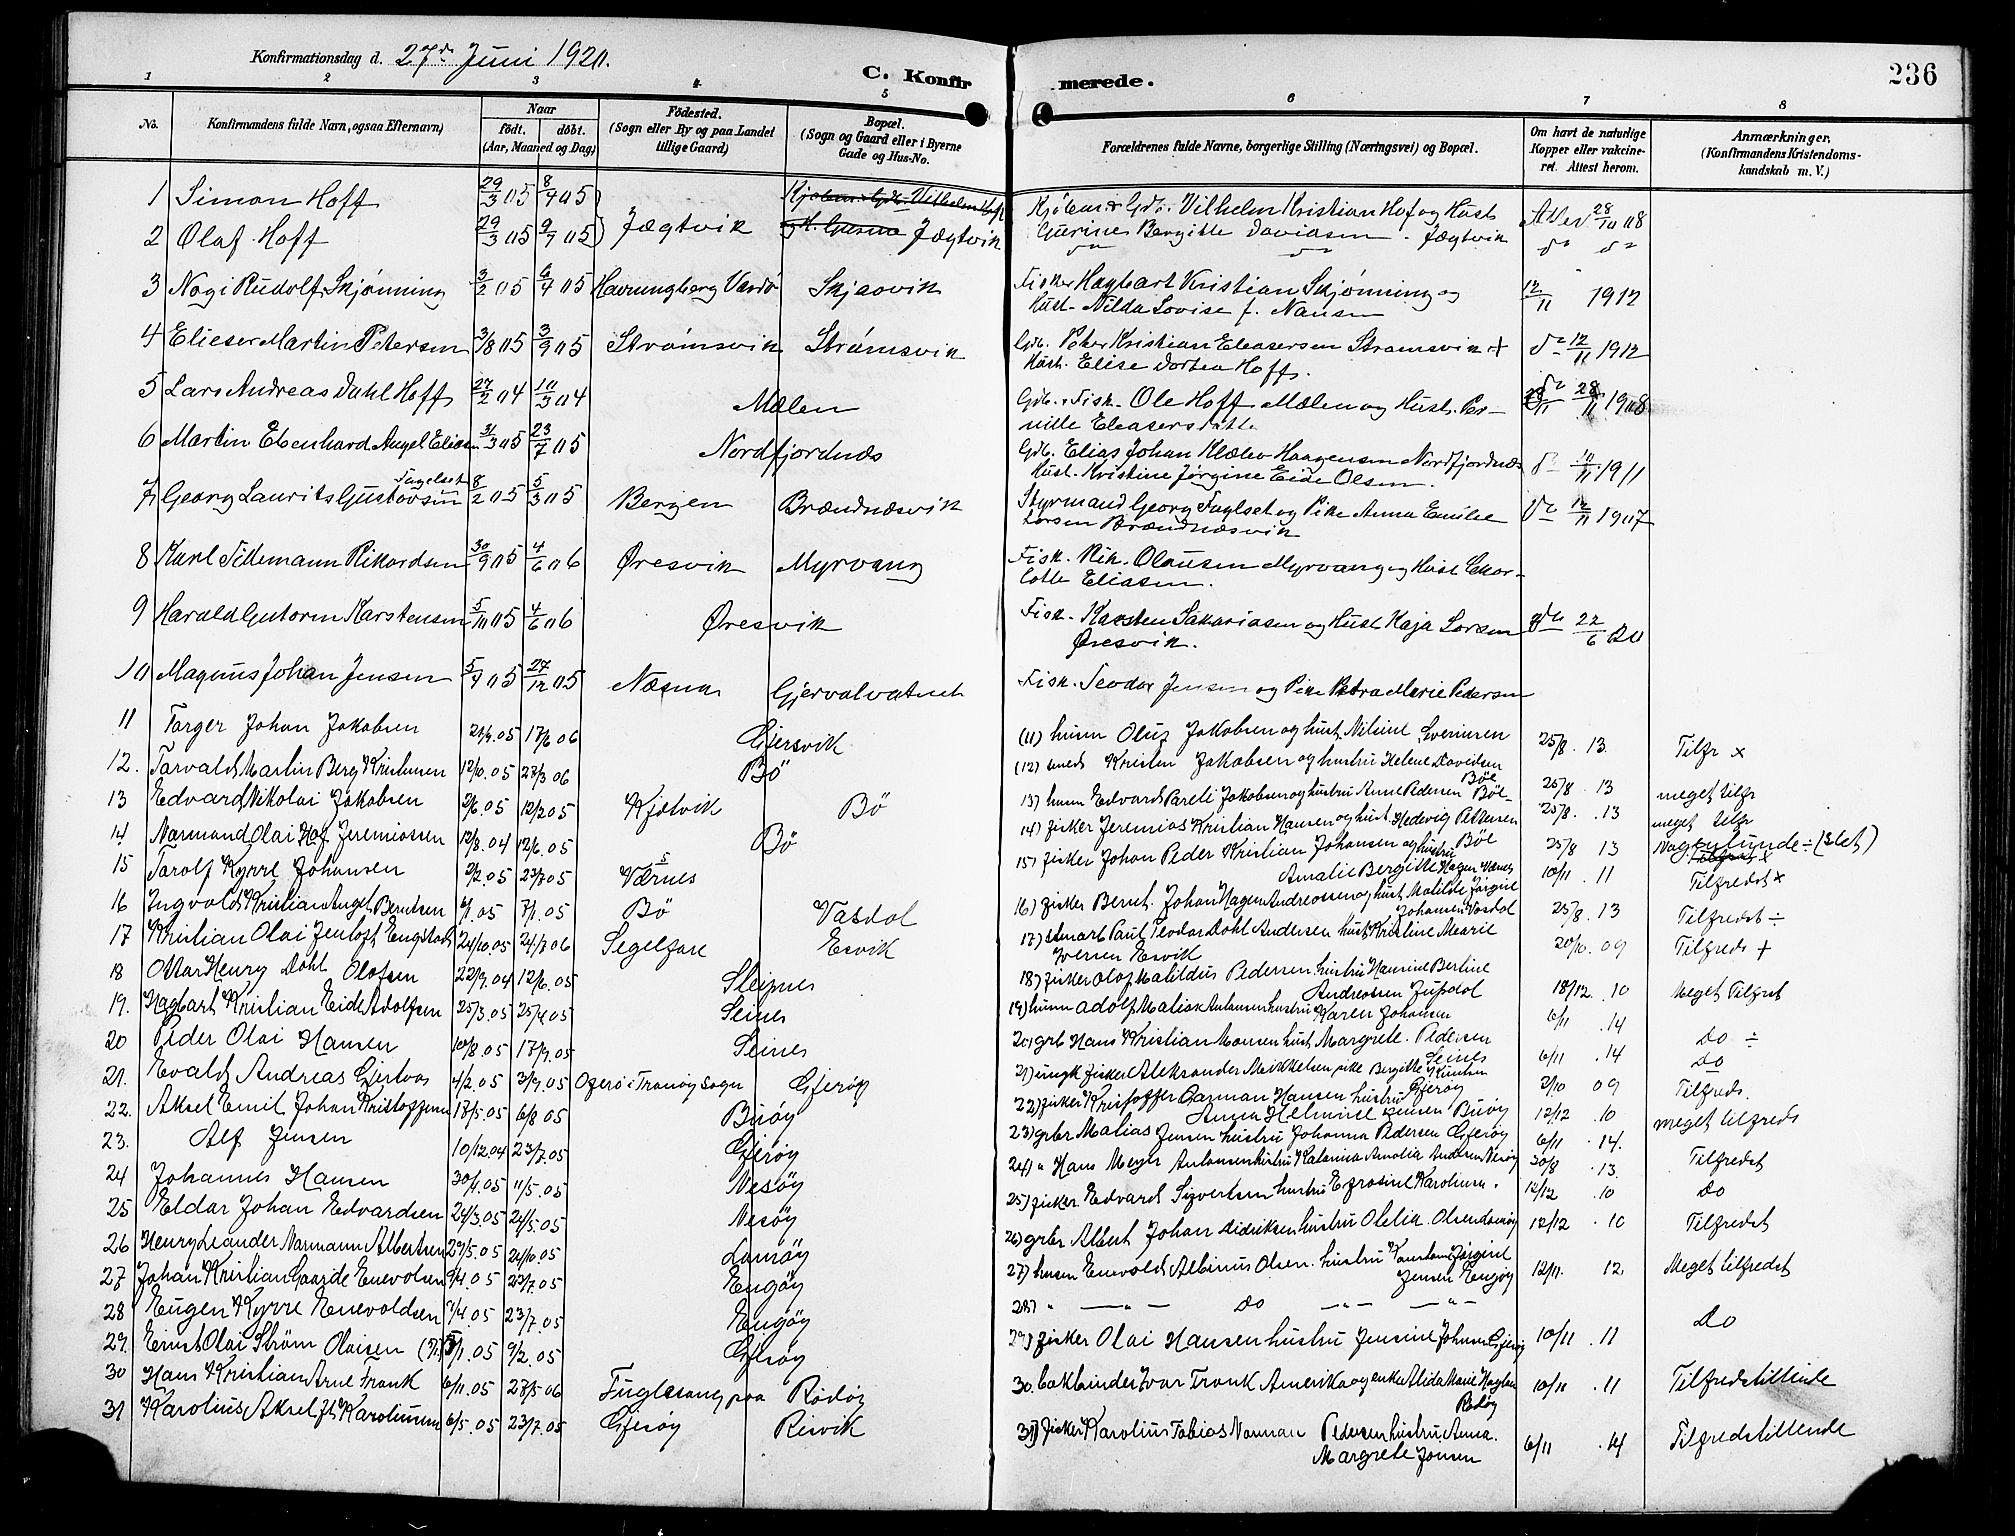 Konfirmationsdag d. 27de Juni 1920.
C. Konfirmerede.
236
1 2 3 4 5 6 7 8
No.
Konfirmandens fulde Navn, ogsaa Efternavn)
Naar
født. døbt.
(Aar, Maaned og Dag)
Fødested.
(Sogn eller By og paa Landet
tillige Gaard)
Bopæl.
(Sogn og Gaard eller i Byerne
Gade og Hus-No.
Forældrenes fulde Navne, borgerlige Stilling (Næringsvei) og Bopæl.
Om havt de naturlige
Kopper eller vakcine-
ret. Attest herom.
Anmærkninger,
(Konfirmandens Kristendoms-
kundskab m. V.)
1 Simon Hoff 29/3 05 8/7 05 Vilhelm Kristian Hof og Hust. 28/10 08
2 Olaf Hoff 29/3 05 9/7 05 Jægtvik Jægtvik Gurine Bergitte Davidsen. Jægtvik
3 Nogi Rudolf Skjønning 3/2 05 6/7 05 Havningberg Vardø Skjaavik Fisker Hagbart Kristian Skjønning og 12/11 1912
Hust. Nilda Lovise f. Nansen
4 Elieser Martin Petersen 3/8 05 3/9 05 Strømsvik Strømsvik Gdb. Peter Kristian Eleasersen Strømsvik + do 12/11 1912
Hust. Elise Dortea Hoff.
5 Lars Andreas Dahl Hoff 27/2 04 10/3 04 Mælen Gdb. Fisk. Ole Hoff Mælen og Hust. Per-
nille Eleasersdatter
6 Martin Ebenhard Angel Eliasen 31/3 05 23/7 05 Nordfjordnæs Gdb. Elias Johan Klæboe Haagensen Nordfjordnæs do 10/11 1911
Hust. Kristine Jørgine Eide Olsen.
Fagelset
7 Georg Laurits Gustavsen 8/2 05 5/3 05 Bergen Brændnæsvik Styrmand Georg Faglset og Pike Anna Emilie do 12/11 1907
Larsen Brændnæsvik
8 Karl Tidemann Rikardsen 30/9 05 4/6 06 Øresvik Myrvang Fisk. Rik. Olausen Myrvang og Hust Char-
lotte Eliasen.
9 Harald Gutorm Karstensen 5/10 05 4/6 06 Øresvik Fisk. Karsten Sakariasen og Hust Kaja Larsen do 22/6 20
Øresvik.
10 Magnus Johan Jensen 5/9 05 27/12 05 Næsna Gjervalvatnet Fisk. Teodor Jensen og Pike Petra Marie Pedersen
11 Targer Johan Jakobsen 17/6 06 Gjersvik (11) husm Oluf Jakobsen og hust. 25/8 . 13 Tilfr x
12. Torvald Martin Berg Kristensen 12/10.05 Bö (12) Kristen Jakobsen og hustru Helene Davidsen
13 Edvard Nikolai Jakobsen 2/6.05 12/3 05 Kjølvik Bö 13) husm Edvard Pareli Jakobsen og hustru Anne Pedersen Böe 25/8 . 13 meget tilfr
14 Normand Olai Hof Jeremiassen 17/8.04 12/6.05 Bö 14) fisker Jeremias Kristian Hansen og hust. Hedevig Pettersen 25/8. .13 meget tilfr
15 Torolf Kyrre Johansen 2/2.05 23/7 05 Værnes 15) fisker Johan Peder Kristian Johansen og hustru 25/8 13
Amalie Bergitte Hagen Værnes 10/11 . 11 Tilfredst x
16 Ingvald Kristian Angel Berntsen 6/1.05 7/1.05 Bö Vasdal 16) fisker Bernt Johan Hagen Andreassen og hust. Matilde Jørgine
Johansen Vasdal 25/8 . 13 Tilfredst ÷
17 Kristian Olai Jentoft Engstad 24/10.05 24/3 06 Segelfore Esvik 17) Paul Teodor Dahl Andersen hust Kristine Marie
Iversen Esvik 20/10 . 09 Tilfreds +
18 Ottar Henry Dahl Olafsen 22/9.04 12/6.05 Sleipnes 18) fisker Olaf Matildus Pedersen hustru Hansine Berline
Andreassen 18/12 . 10 Meget Tilfrst
19. Hagbart Kristian Eide Adolfsen 25/3.05 25/4 05 Seines 19) husm Adolf Maliak Antonsen hustru Karen Johansen 6/11 .14 Do ÷
20 Peder Olai Hansen 10/8.05 17/9.05 Seines 20) grb Hans Kristian Monsen hust Margrete Pedersen
Seines 6/11 . 14 Do
21. Evald Andreas Gjertvas 4/2.05 3/9.05 i Tranøy Sogn Gjerøy 21) ungk fisker Aleksander Mikkelsen pike Bergitte Knutsen
Gjerøy 2/10 09 Tilfreds.
22. Aksel Emil Johan Kristoffersen 17/5.05 6/8 05 Buøy 22) fisker Kristoffer Hansen hustru
Anna Helmine Jensen Buøy 12/12 .10 meget tilfreds
23. Alf Jensen 10/12.04 23/7.05 Gjerøy 23) grbr Malias Jensen hustru Johanna Pedersen Gjerøy 6/11 . 14.
24 Johannes Hansen 30/1.05 11/5.05 Nesöy 24) " Hans Meyer Antonsen hustru Katarina Amalia Andersen Nesöy 20/8 . 13. Tilfredst
25 Eldar Johan Edvardsen 24/3.05 24/5.05 Nesöy 25) fisker Edvard Sigvertsen hustru Efrosine Karolinsen. 12/12 . 10 Do
26 Henry Leander Normann Albertsen 29/5.05 24/10.05 Lamöy 26) grbr Albert Johan Didriksen hustru Olelia Olsen 12/12 . 10 Tilfredst
27 Johan Kristian Gaarde Enevolsen 9/4.05 23/7.05 Engöy 27) husm Enevold Albinus Olsen hustru Konstance Jørgine
Jensen Engøy 12/11. 12 Meget tilfredst
28 Eugen Kyrre Enevoldsen 9/4.05 23/7.05 Engöy 28) " — " — Do — " — — " — Do
29. Ernst Olai Strøm Olaisen 5/1.05 9/2.05 Gjerøy 29) fisker Olai Hansen hustru Jensine Johansen Gjerøy 10/11 . 11
30 Hans Kristian Arne Frank 6/11.05 27/5 06 Fuglesang paa Rødöy 30. Ivar Frank Amerika og enke Alida Marie
Rødøy 10/11 . 11 Tilfredstillende
31 Karolius Aksel ft Karoliussen 6/5.05 23/7.05 Gjerøy Risvik 31) fisker Karolius Tobias Norman Pedersen hustru Anna.
Margrete Jonsen 6/11 . 14 Tilfredstillende